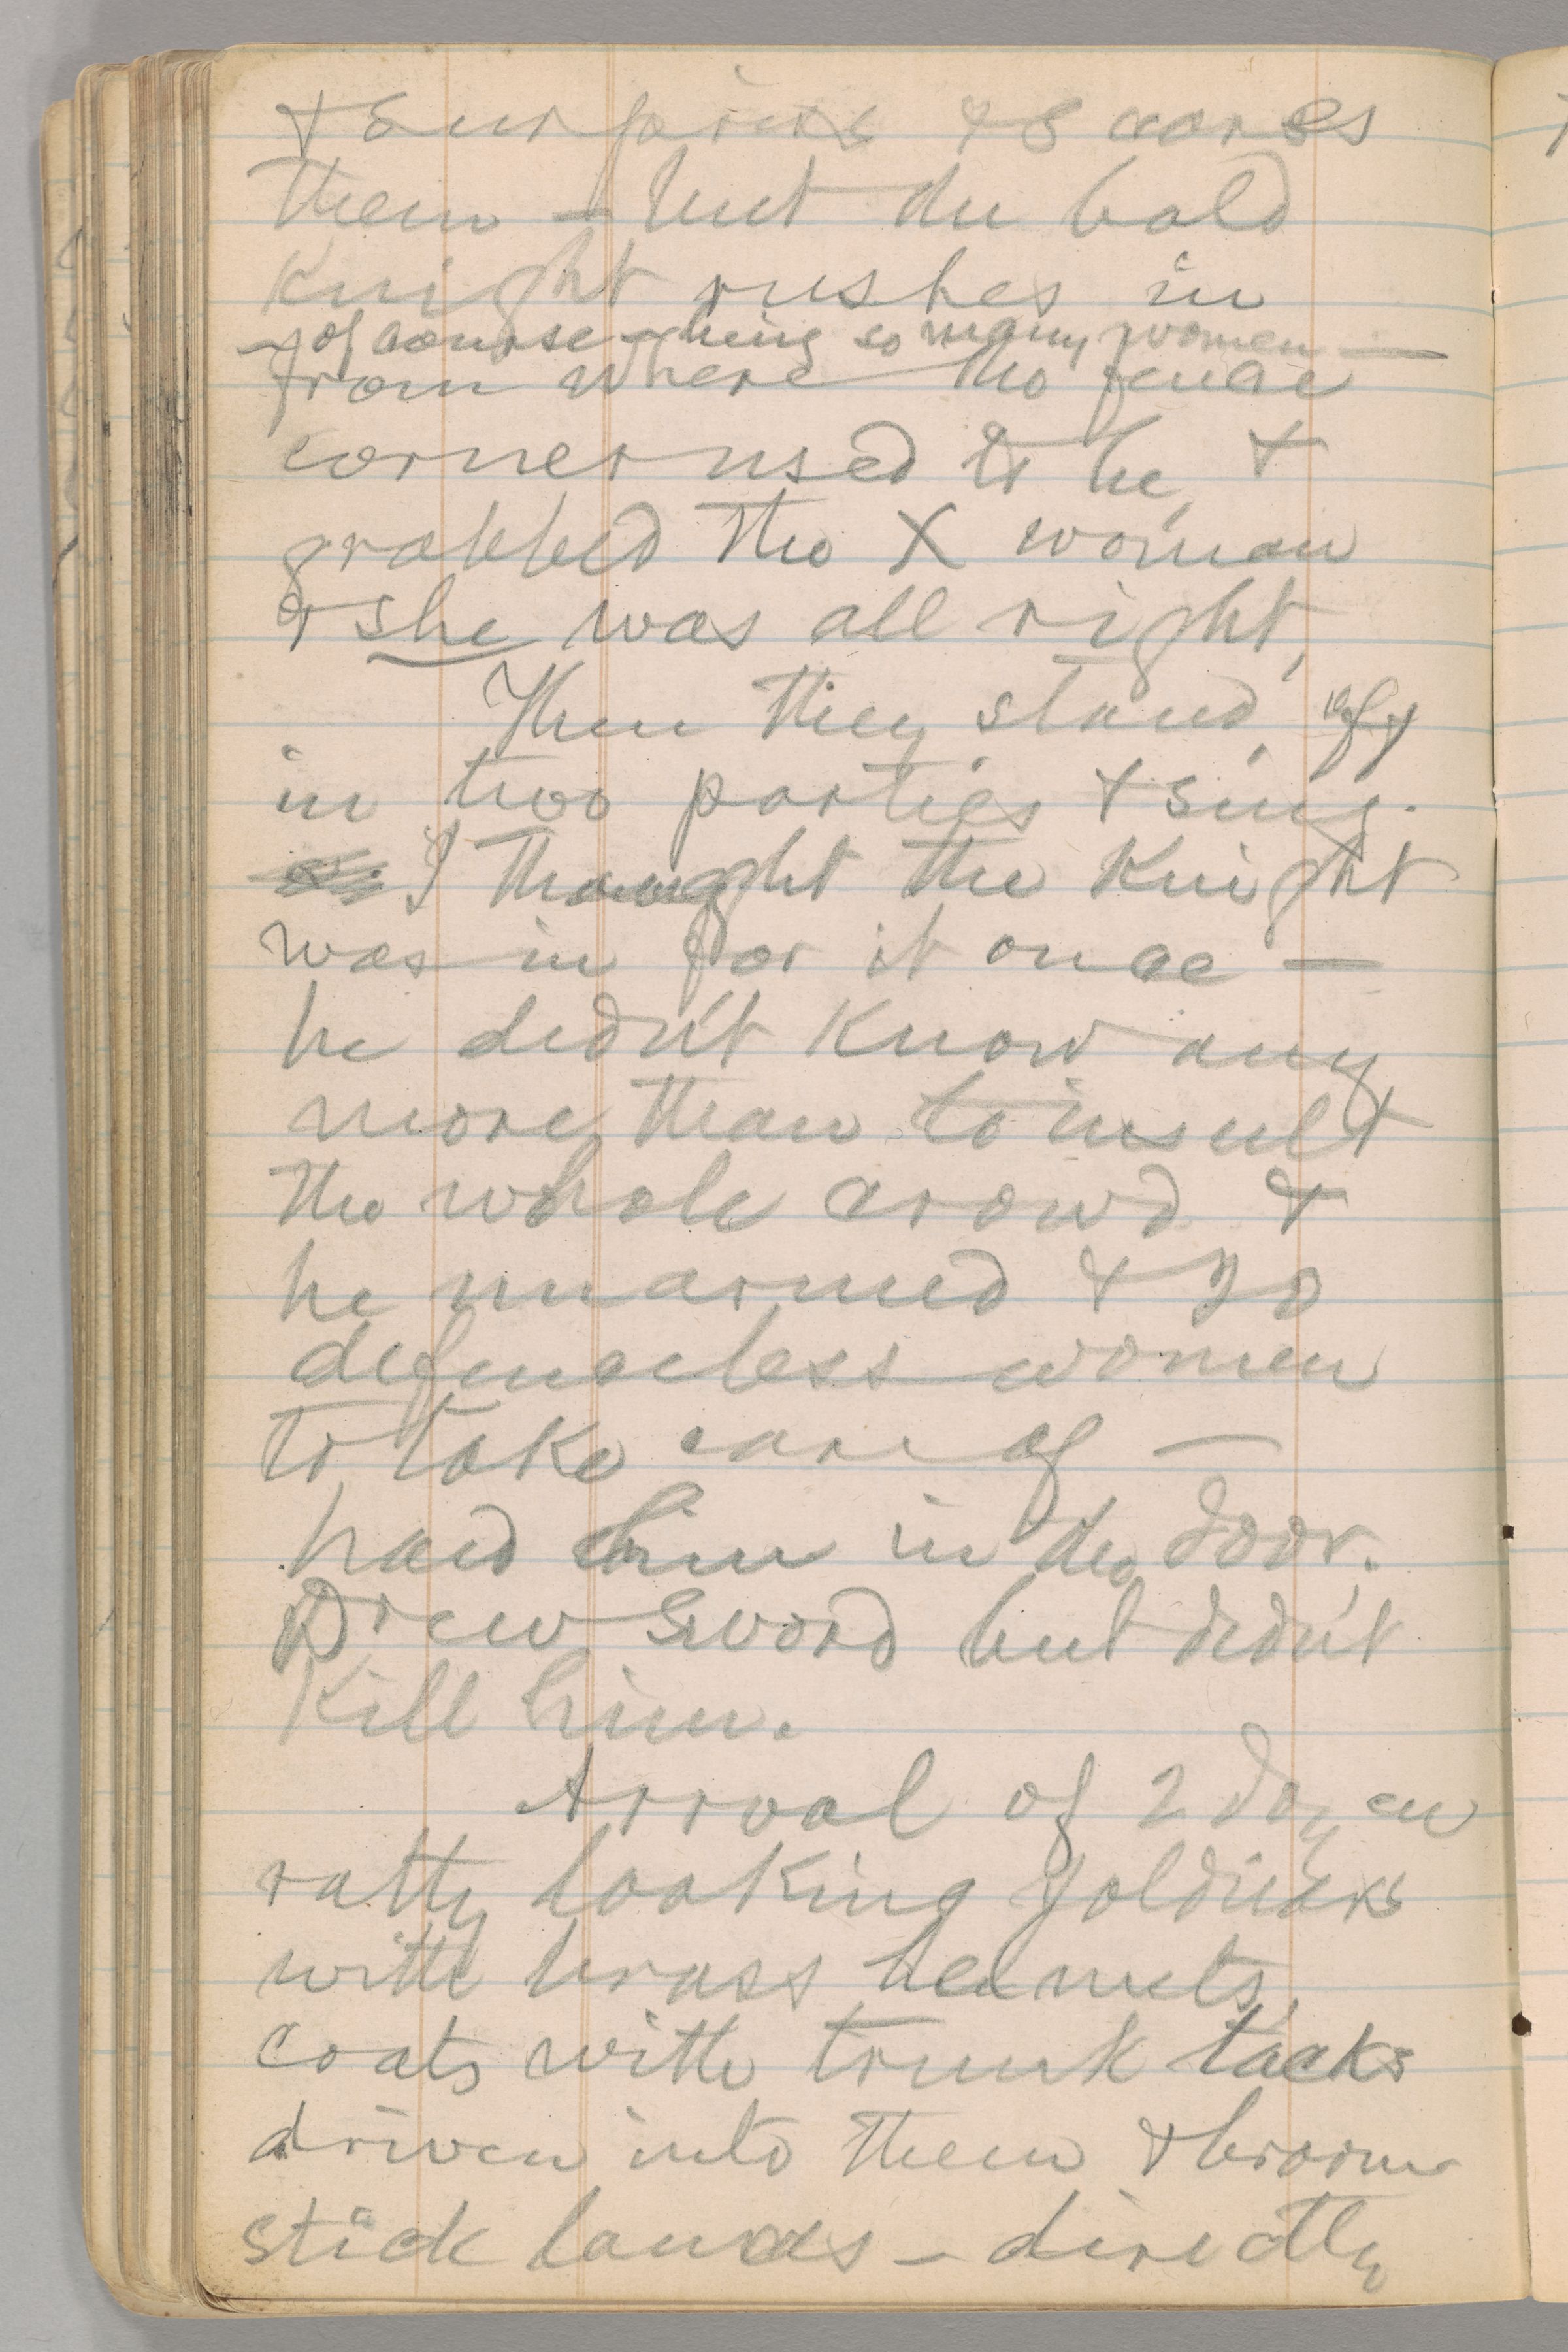 & surprise & scares
them — but the bold
Knight rushes in
— of course — being so many women —
from where the fence
corner used to be, &
grabbed the X woman
& she was all right,
Then they stand off
in two parties & sing.
I thought the Knight
was in for it once —
he didn't know any
more than to insult
the whole crowd &
he unarmed & 20
defenceless women
to take care of —
had him in the door.
Drew sword but didn't
Kill him.
Arrval of 2 dozen
ratty looking soldiers
with brass helmets,
coats with trunk tacks
driven into them & broom
stick lances — directly